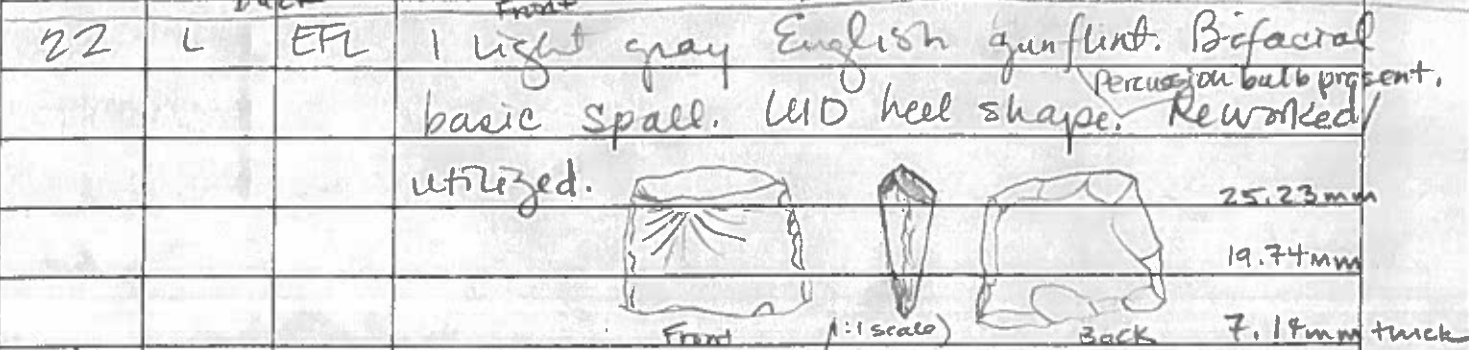 Back Front
22 L EFL 1 light gray English gunflint. Bifacial
Percussion bulb present.
basic spall. UID heel shape. Reworked/
utilized.
25.23mm
19.74mm
Front (1:1 scale) Back 7.14mm thick